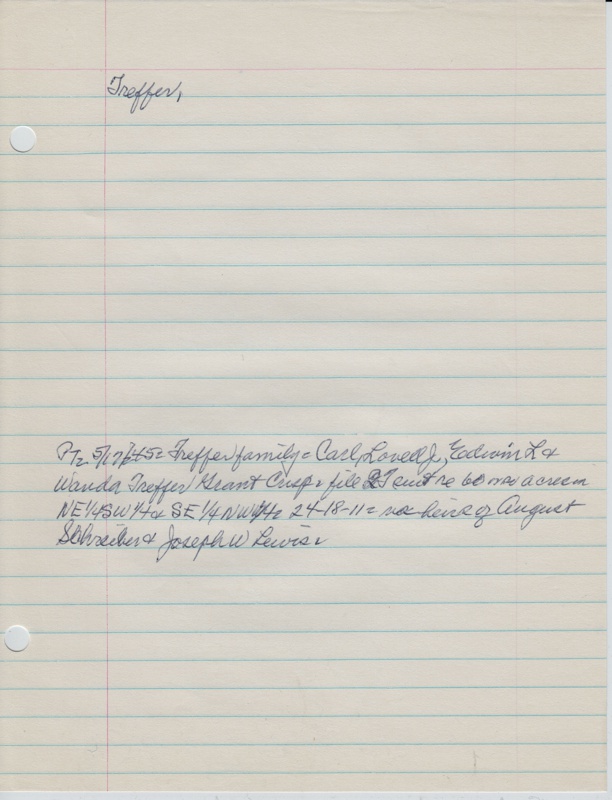 Treffer,
5/17/45 = Treffer family = Carl, J, Edwin L &
Wanda Treffer Grant Crisp = file QT suit re 60 acres in
NE 1/4 SW 1/4 & SE 1/4 NW 1/4 = 24-18-11 = vs heirs of August
Schreiber & Joseph W Lewis =